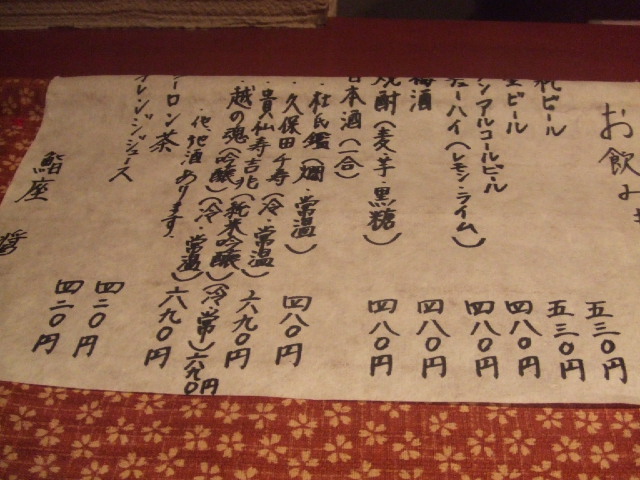 お飲み
瓶ビール 五三〇円
生ビール 五三〇円
ノンアルコールビール 四八〇円
チューハイ(レモン・ライム) 四八〇円
梅酒 四八〇円
焼酎(麦・芋・黒糖) 四八〇円
日本酒(一合)
杜氏鑑(燗・常温) 四八〇円
久保田千寿
貴仙寿吉兆(冷・常温) 六九〇円
越の魂(吟醸)(純米吟醸)(冷・常)六九〇円
他地酒あります。(冷・常温) 六九〇円
ウーロン茶 四二〇円
オレンジジュース 四二〇円
鮨座